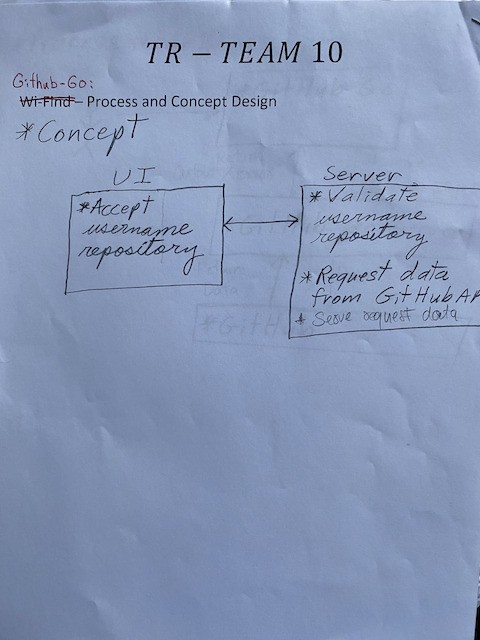 TR – TEAM 10
Github-Go:
Wi-Find – Process and Concept Design
*Concept
UI
*Accept
username
repository
Server
*Validate
username
repository
*Request data
from GitHub AP
* Serve request data